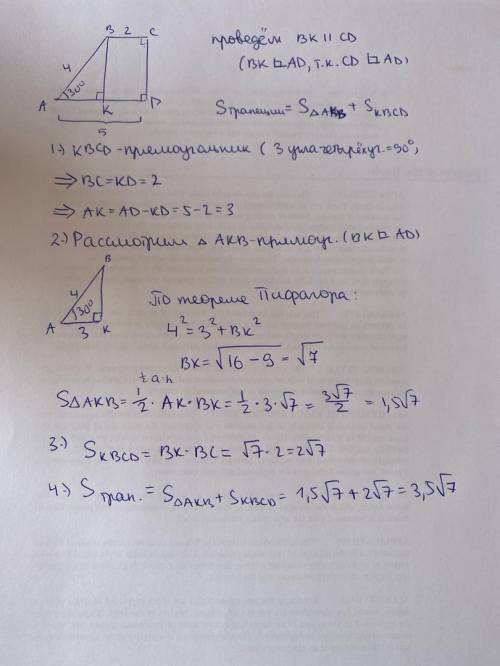 B 2 C
4
30°
A
K
D
5
проведём BK || CD
(BK ⊥ AD, т.к. CD ⊥ AD)
Sтрапеции = S△AKB + SKBCD
1.) KBCD - прямоугольник ( 3 угла четырёхуг. = 90°,
⟹ BC = KD = 2
⟹ AK = AD - KD = 5 - 2 = 3
2.) Рассмотрим △ AKB - прямоуг. (BK ⊥ AD)
B
4
30°
A
3
K
По теореме Пифагора:
4² = 3² + BK²
BK = √16 - 9 = √7
½ a·h
S△AKB = 1/2 · AK · BK = 1/2 · 3 · √7 = 3√7/2 = 1,5√7
3.) SKBCD = BK · BC = √7 · 2 = 2√7
4.) Sтрап. = S△AKB + SKBCD = 1,5√7 + 2√7 = 3,5√7